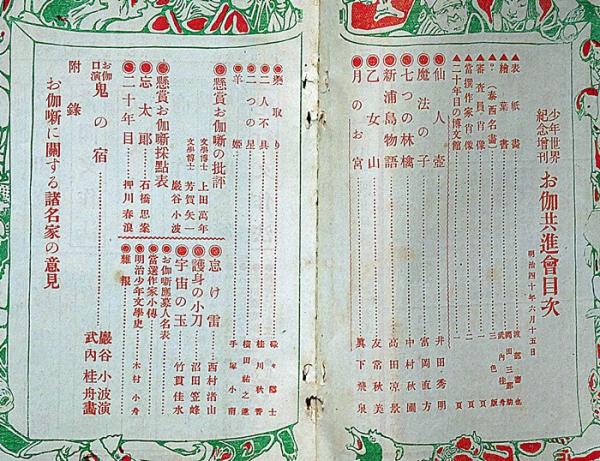 少年世界
紀念増刊
お伽共進會目次
明治四十年六月十五日
表紙畫
繪葉書
春西名畫
審査員肖像 頁
當撰作家肖像 頁
二十年目の博文館 頁
仙人壺 井田秀明
魔法の子 富岡直方
七つの林檎 中村秋圃
新浦島物語 高田凉景
乙女山 友常秋美
月のお宮 眞下飛泉
二人不具 桂川秋香
二つの星 横田祐之進
羊姫 手塚小南
懸賞お伽噺の批評
文學博士 上田萬年
文學博士 芳賀矢一
巖谷小波
懸賞お伽噺採點表
忘太郎 石橋思案
二十年目 押川春浪
忘け雷 西村渚山
護身の小刀 沼田笠峰
宇宙の玉 竹貫佳水
お伽噺應募人名表
當選作家小傳
明治少年文學史 木村小舟
雜報
お伽口演 鬼の宿 巖谷小波演
武內桂舟畫
附錄
お伽噺に關する諸名家の意見